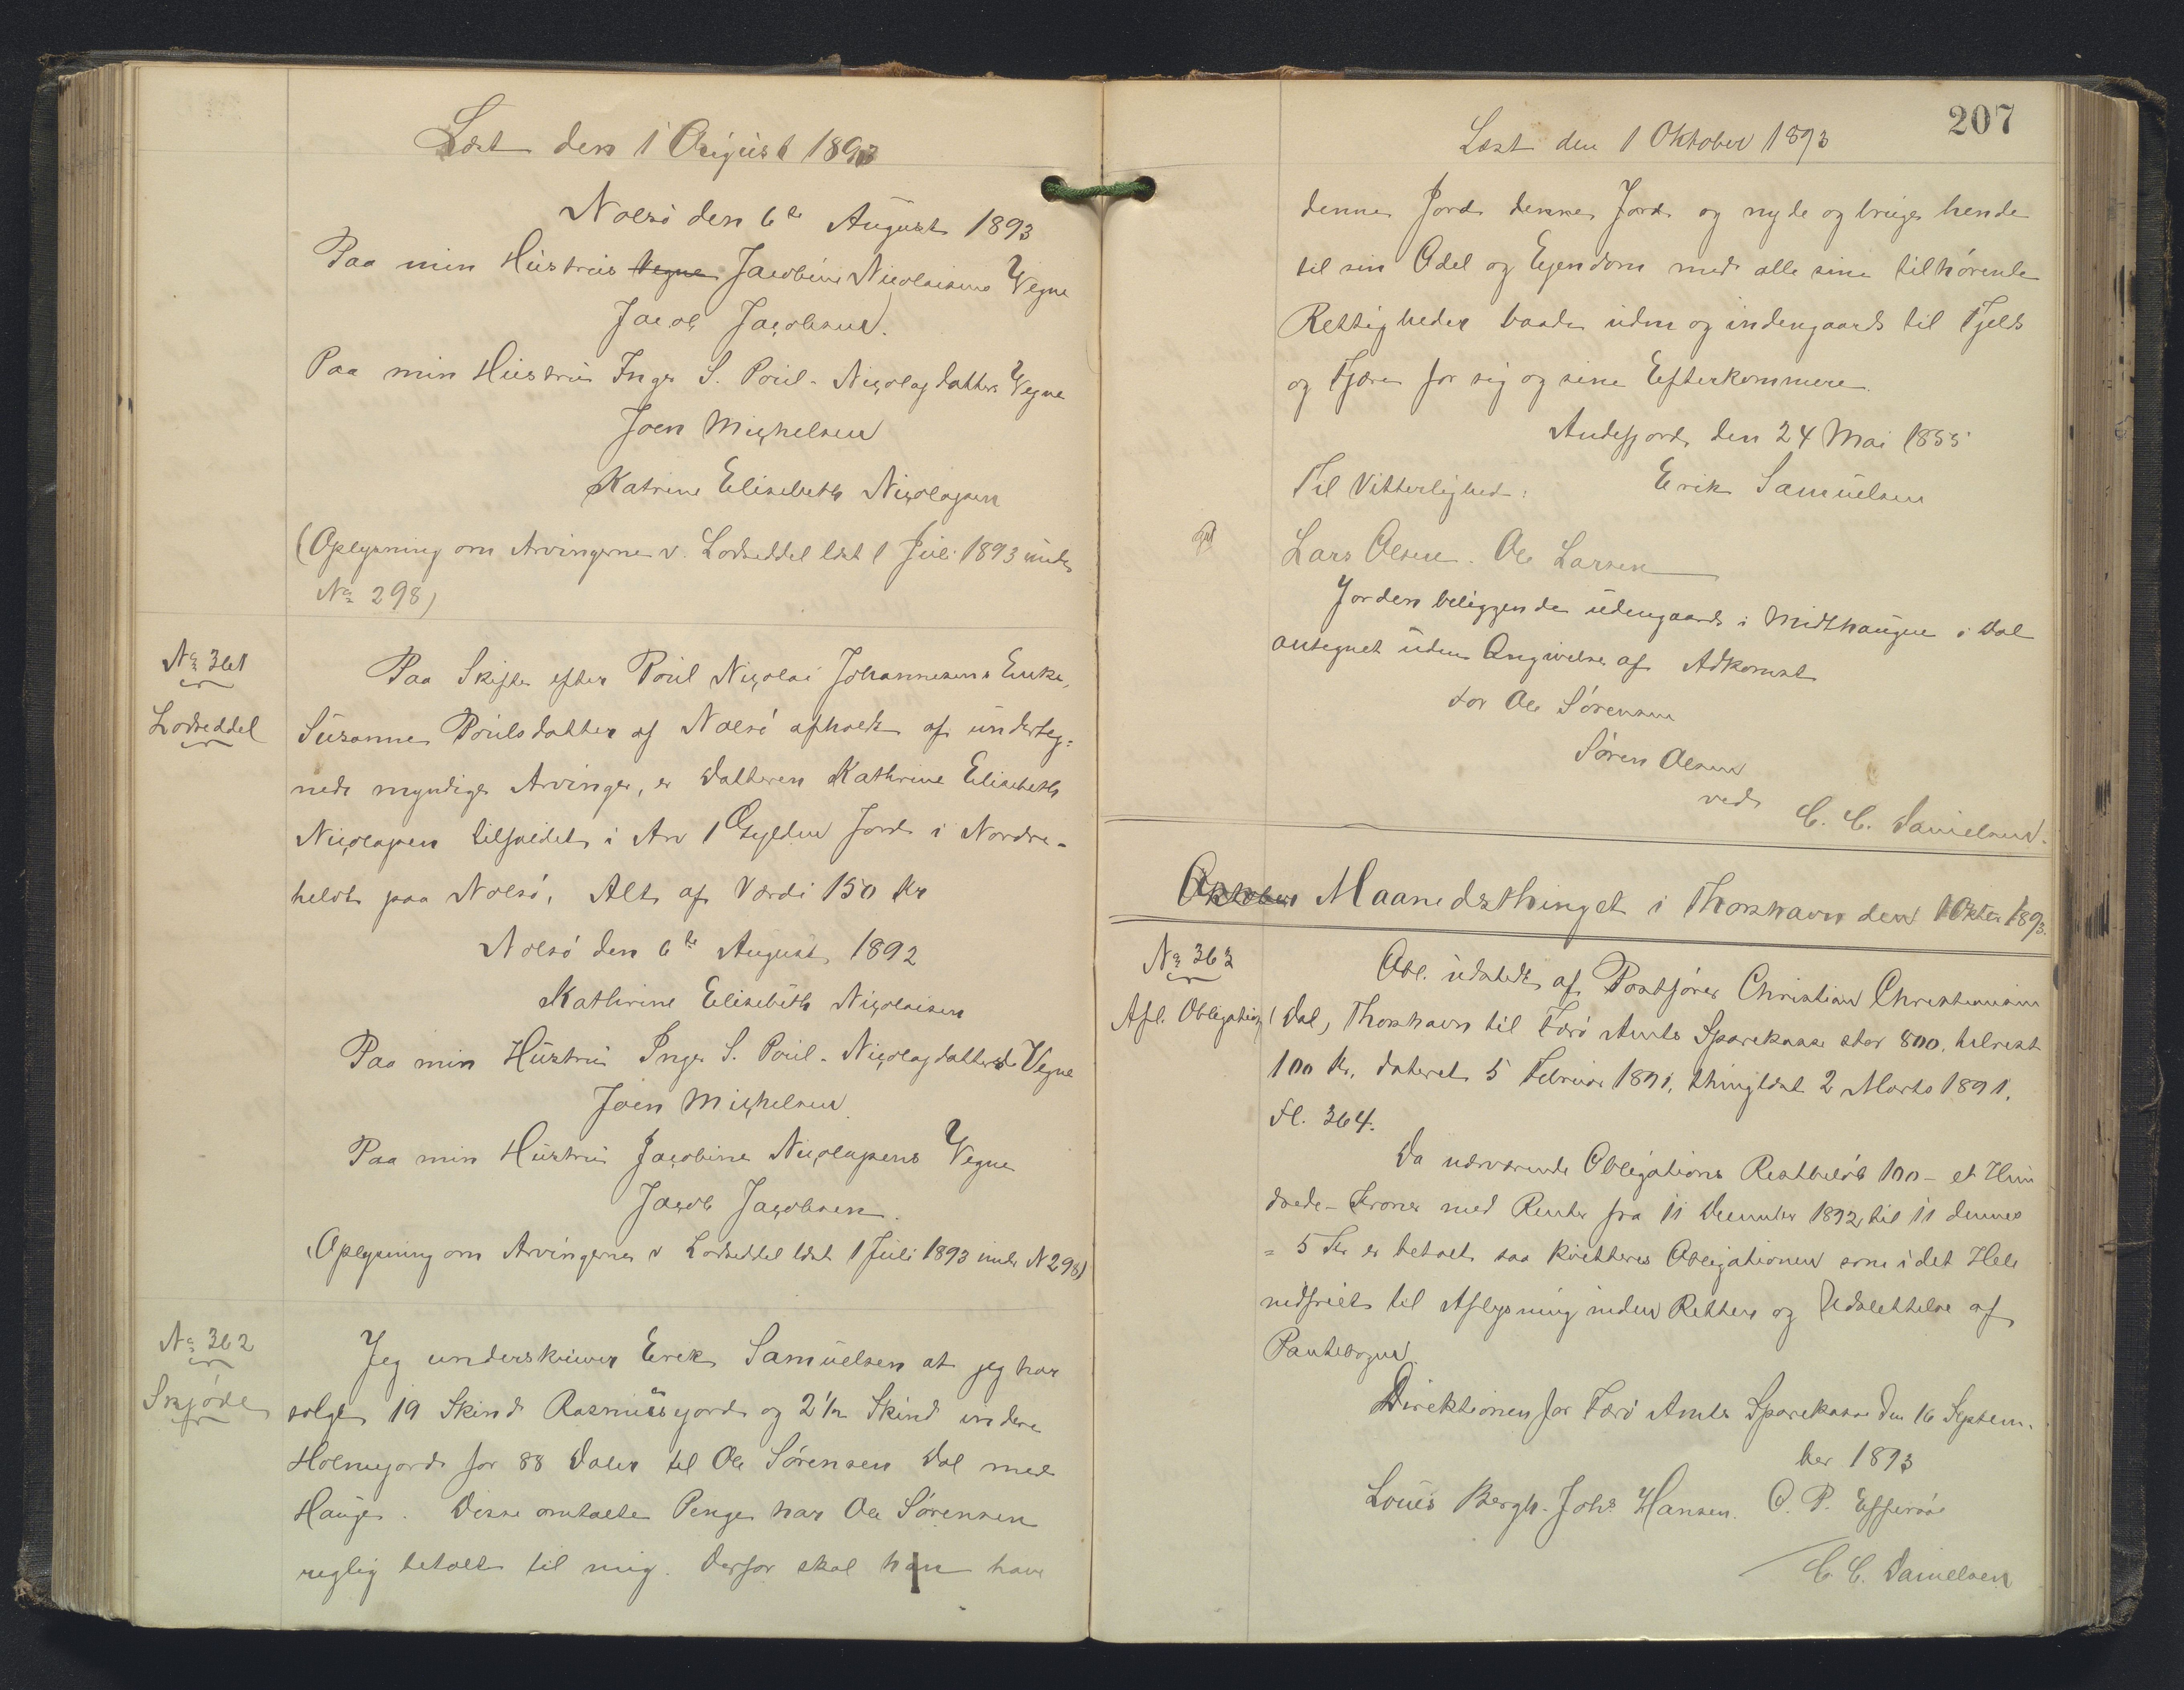 Læst den 1 August 1893
Nolsö den 6te August 1893
Paa min Hustrus Vegne Jacobine Nicolaisens Vegne
Jacob Jacobsen.
Paa min Hustru Inger S. Poul-Nicolajdatters Vegne
Joen Michelsen
Katrine Elisebeth Nicolajsen
(Oplysning om Arvingerne v. Lodseddel læst 1 Juli 1893 under
No 298)
No 361
Lodseddel
Paa Skifte efter Poul Nicolai Johannesens Enke,
Susanne Poulsdatter af Nolsö afholdt af underteg=
nede myndige Arvinger, er Datteren Kathrine Elisebeth
Nicolajsen tilfaldet i Arv 1 Gylden Jord i Nordre-
heldt paa Nolsö, Alt af Værdi 150 Kr
Nolsö den 6te August 1892
Kathrine Elisebeth Nicolaisen
Paa min Hustru Inger S. Poul-Nicolajdatters Vegne
Joen Michelsen
Paa min Hustru Jacobine Nicolajsens Vegne
Jacob Jacobsen.
(Oplysning om Arvingerne v Lodseddel læst 1 Juli 1893 under N 298)
No 362
Skjöde
Jeg underskriver Erek Samuelsen at jeg har
solgt 19 Skind Rasmusjord og 2 1/2 Skind indere
Holmejord for 88 Daler til Ole Sörensen Dal med
Hauge. Disse omtalte Penge har Ole Sörensen
reglig betalt til mig. Derfor skal han have
207
Læst den 1 Oktober 1893
denne Jord denne Jord og nyde og bruge hende
til sin Odel og Ejendom med alle sine tilhörende
Rettigheder baade uden og indengaards til Fjeld
og Fjære for sig og sine Efterkommere.
Andefjord, den 24 Mai 1855
Til Vitterlighed: Erik Samuelsen
Lars Olsen. Ole Larsen
Jorden beliggende udengaards i Midthaugen i Dal
antegnet uden Angivelse af Adkomst
for Ole Sörensen
Sören Olsen
ved C. C. Danielsen.
Oktober Maanedsthinget i Thorshavn den 1 Oktbr 1893.
No 363
Afl. Obligation
Obl. udstedt af Postförer Christian Christiansen
(Dal, Thorshavn til Færö Amts Sparekasse stor 800, tilrest
100 Kr, dateret 5 Februar 1891, thinglæst 2 Marts 1891,
Fl. 364.
Da nærværende Obligations Restbelöb 100 - et Hun
drede - Kroner med Renter fra 11 December 1892 til 11 dennes
= 5 Kr er betalt saa kvitteres Obligationen som i det Hele
indfriet til Aflysning inden Retten og Udslettelse af
Pantebogen.
Direktionen for Færö Amts Sparekasse den 16 Septem-
ber 1893
Louis Bergh. Johs Hansen. O. P. Effersöe
C. C. Danielsen